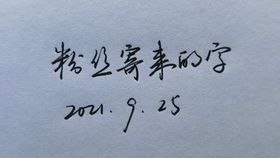 粉丝寄来的字
2021.9.25